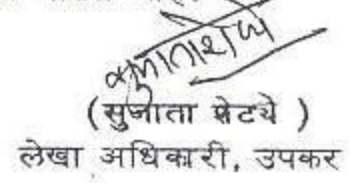 (सुजाता शेटये )
लेखा अधिकारी, उपकर